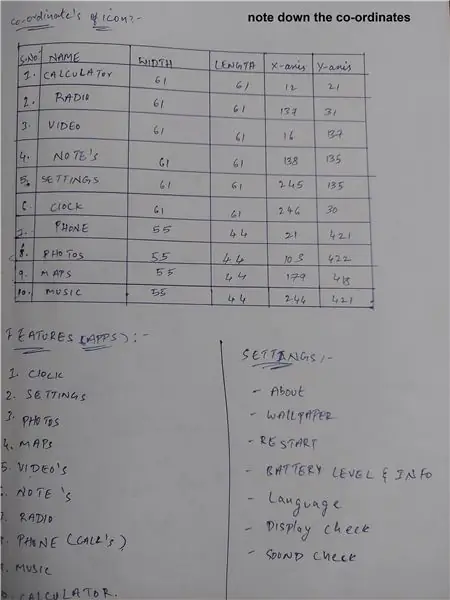 co-ordinate's of icon:-
note down the co-ordinates
S.No NAME WIDTH LENGTH X-axis Y-axis
1. CALCULATOR 61 61 12 21
2. RADIO 61 61 137 31
3. VIDEO 61 61 16 137
4. NOTE'S 61 61 138 135
5. SETTINGS 61 61 245 135
6. CLOCK 61 61 246 30
7. PHONE 55 44 21 421
8. PHOTOS 55 44 103 422
9. MAPS 55 44 179 418
10. MUSIC 55 44 244 421
FEATURES (APPS):-
1. CLOCK
2. SETTINGS
3. PHOTOS
4. MAPS
5. VIDEO'S
NOTE'S
RADIO
PHONE (CALL'S)
MUSIC
CALCULATOR.
SETTINGS:-
- About
- WALLPAPER
- RESTART
- BATTERY LEVEL & INFO
- Language
- Display check
- SOUND check